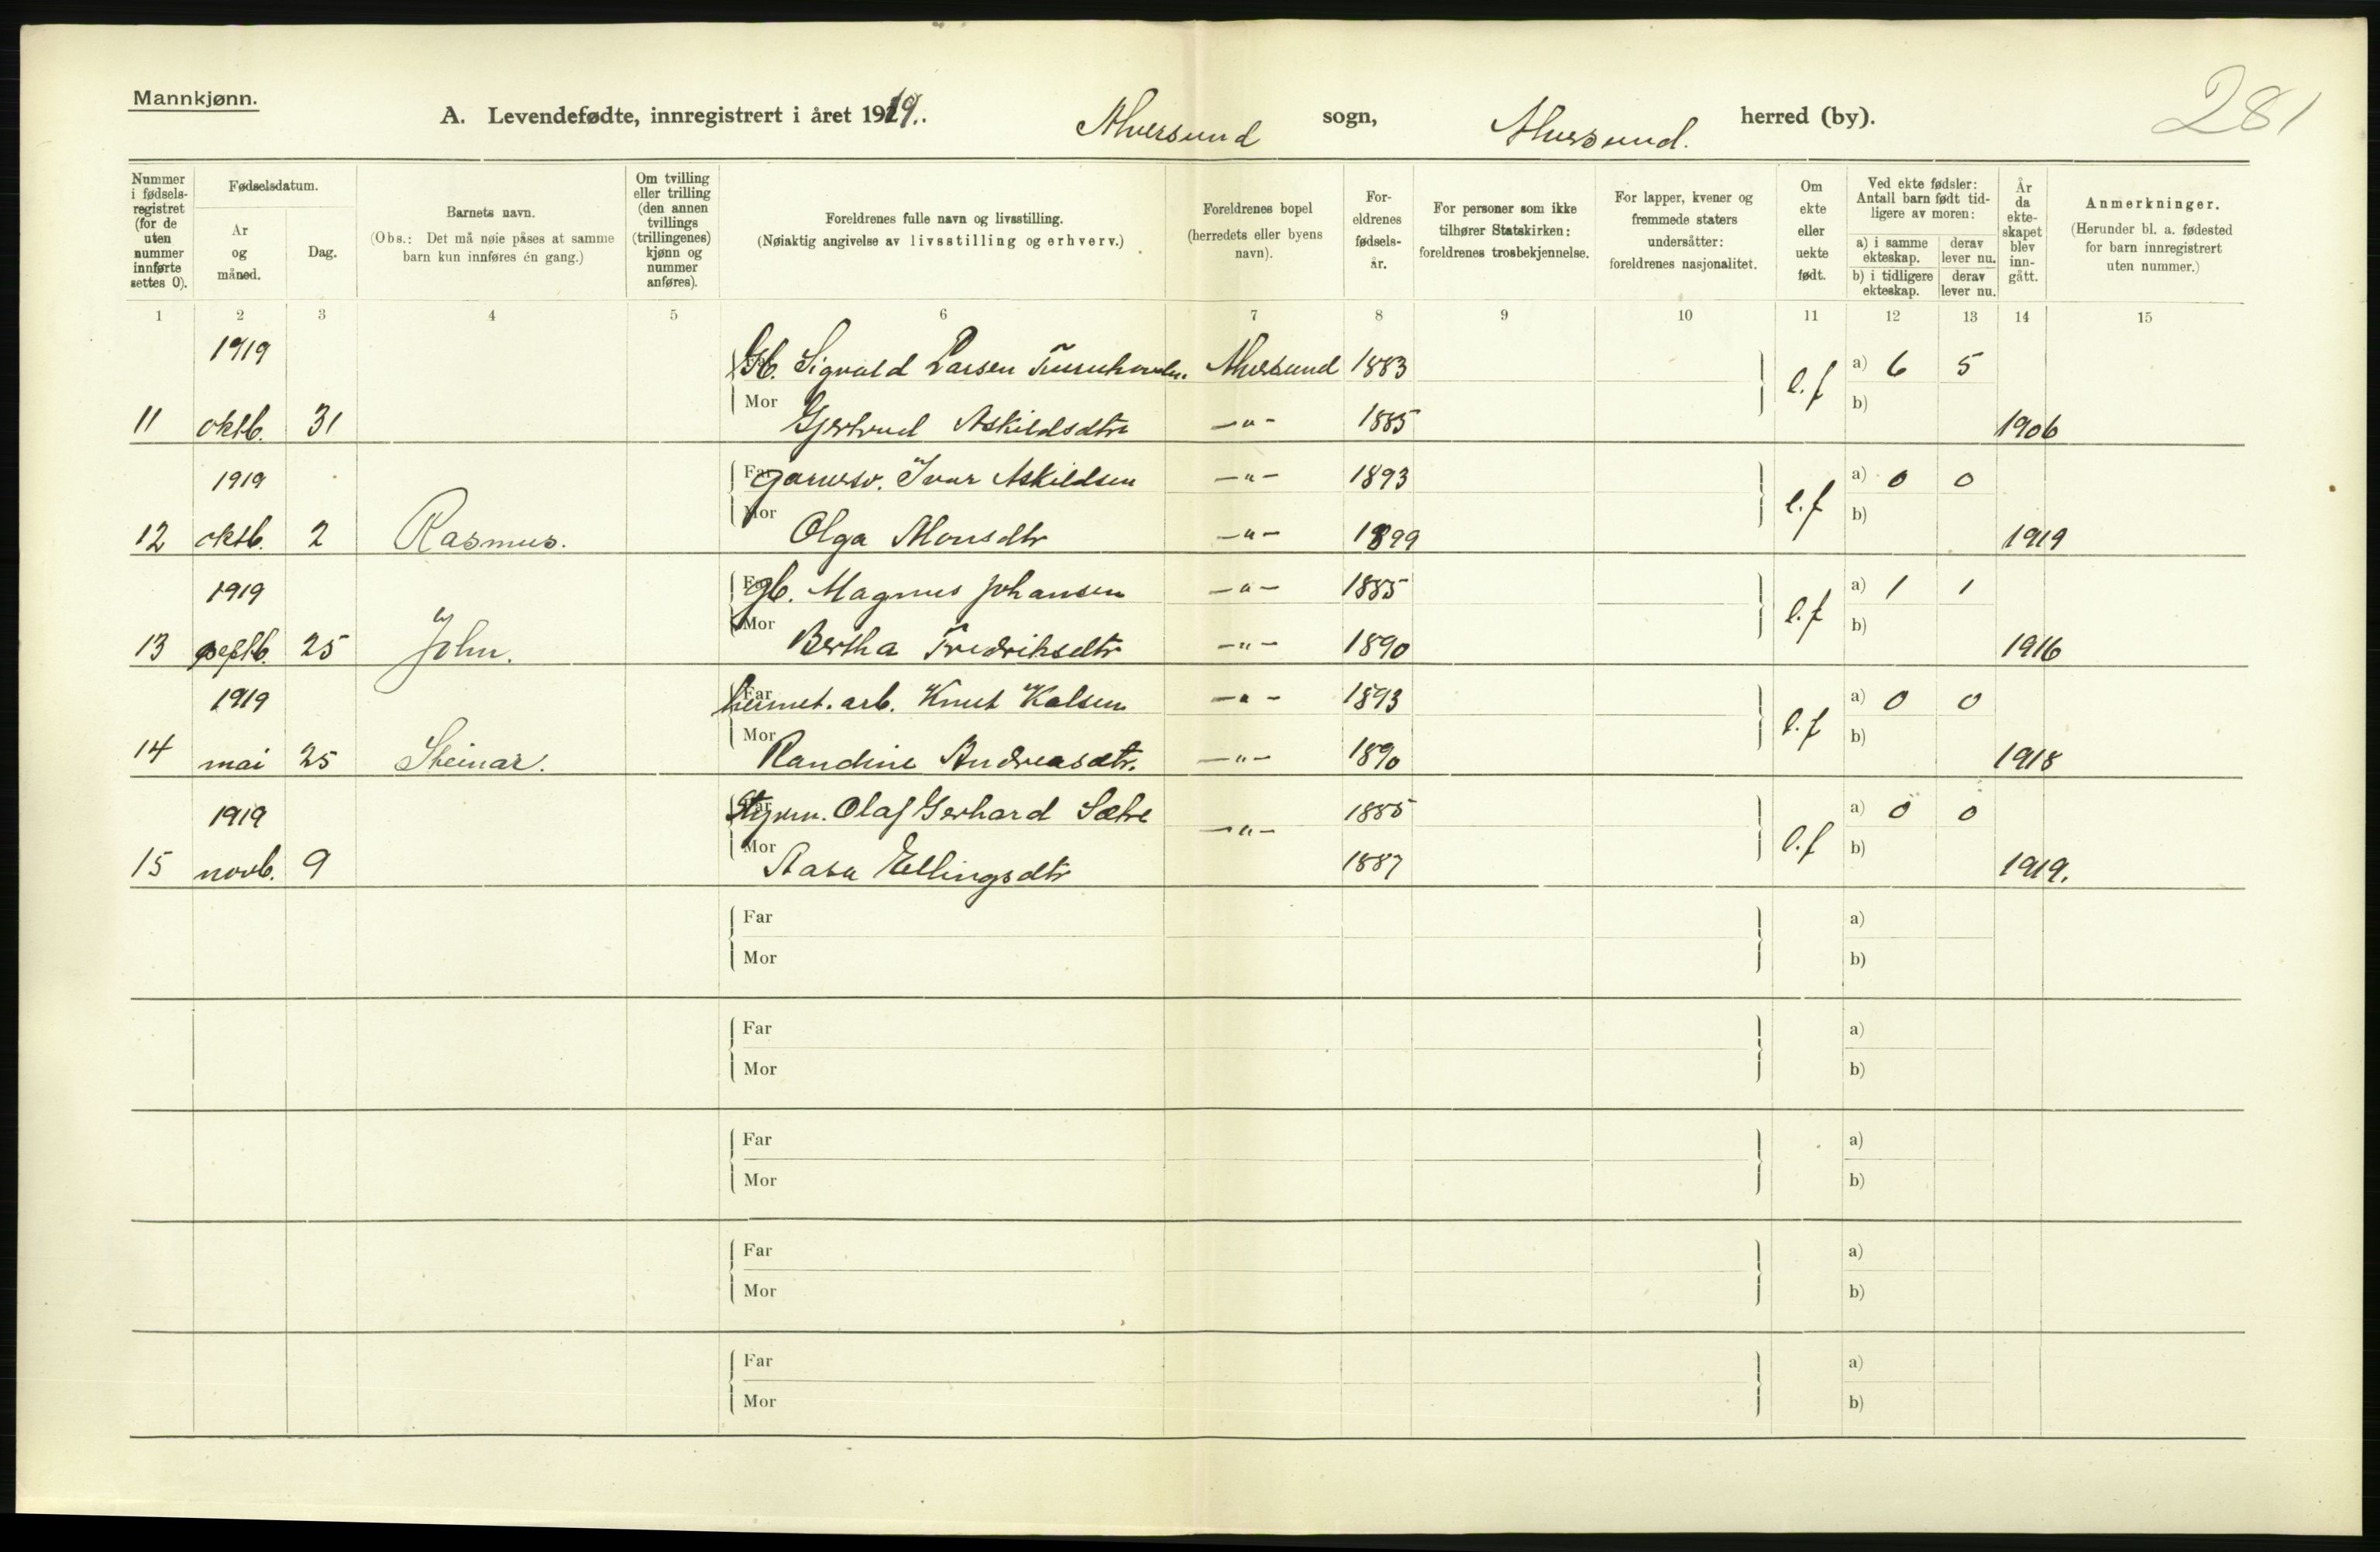 Mannkjønn.
A. Levendefødte, innregistrert i året 1919. Alversund sogn, Alversund. herred (by).
281
Nummer i fødsels-registret (for de uten nummer innførte settes 0).
Fødselsdatum.
År og måned.
Dag.
Barnets navn.
(Obs.: Det må nøie påses at samme barn kun innføres én gang.)
Om tvilling eller trilling (den annen tvillings (trillingenes) kjønn og nummer anføres).
Foreldrenes fulle navn og livsstilling.
(Nøiaktig angivelse av livsstilling og erhverv.)
Foreldrenes bopel (herredets eller byens navn).
For-eldrenes fødsels-år.
For personer som ikke tilhører Statskirken: foreldrenes trosbekjennelse.
For lapper, kvener og fremmede staters undersåtter: foreldrenes nasjonalitet.
Om ekte eller uekte født.
Ved ekte fødsler: Antall barn født tid-ligere av moren:
a) i samme ekteskap. derav lever nu.
b) i tidligere ekteskap. derav lever nu.
År da ekte-skapet blev inn-gått.
Anmerkninger.
(Herunder bl. a. fødested for barn innregistrert uten nummer.)
1 2 3 4 5 6 7 8 9 10 11 12 13 14 15
1919 Gb. Sigvald Larsen Alversund 1883 e.f a) 6 5
11 oktb. 31 Mor Gjertrud Askildsdtr —"— 1885 b) 1906
1919 Far Ivar Askildsen —"— 1893 e.f a) 0 0
12 oktb. 2 Rasmus. Mor Olga Monsdtr —"— 1899 b) 1919
1919 Far Gb. Magnus Johansen —"— 1885 e.f a) 1 1
13 septb. 25 John. Mor Bertha Fredriksdtr —"— 1890 b) 1916
1919 Far hermet. arb. Knut Kolsen —"— 1893 e.f a) 0 0
14 mai 25 Steinar. Mor Randine Andreasdtr. —"— 1890 b) 1918
1919 Far Styrm. Olaf Gerhard Sætre —"— 1885 e.f a) 0 0
15 novb. 9 Mor Aasa Ellingsdtr 1887 b) 1919.
Far a)
Mor b)
Far a)
Mor b)
Far a)
Mor b)
Far a)
Mor b)
Far a)
Mor b)